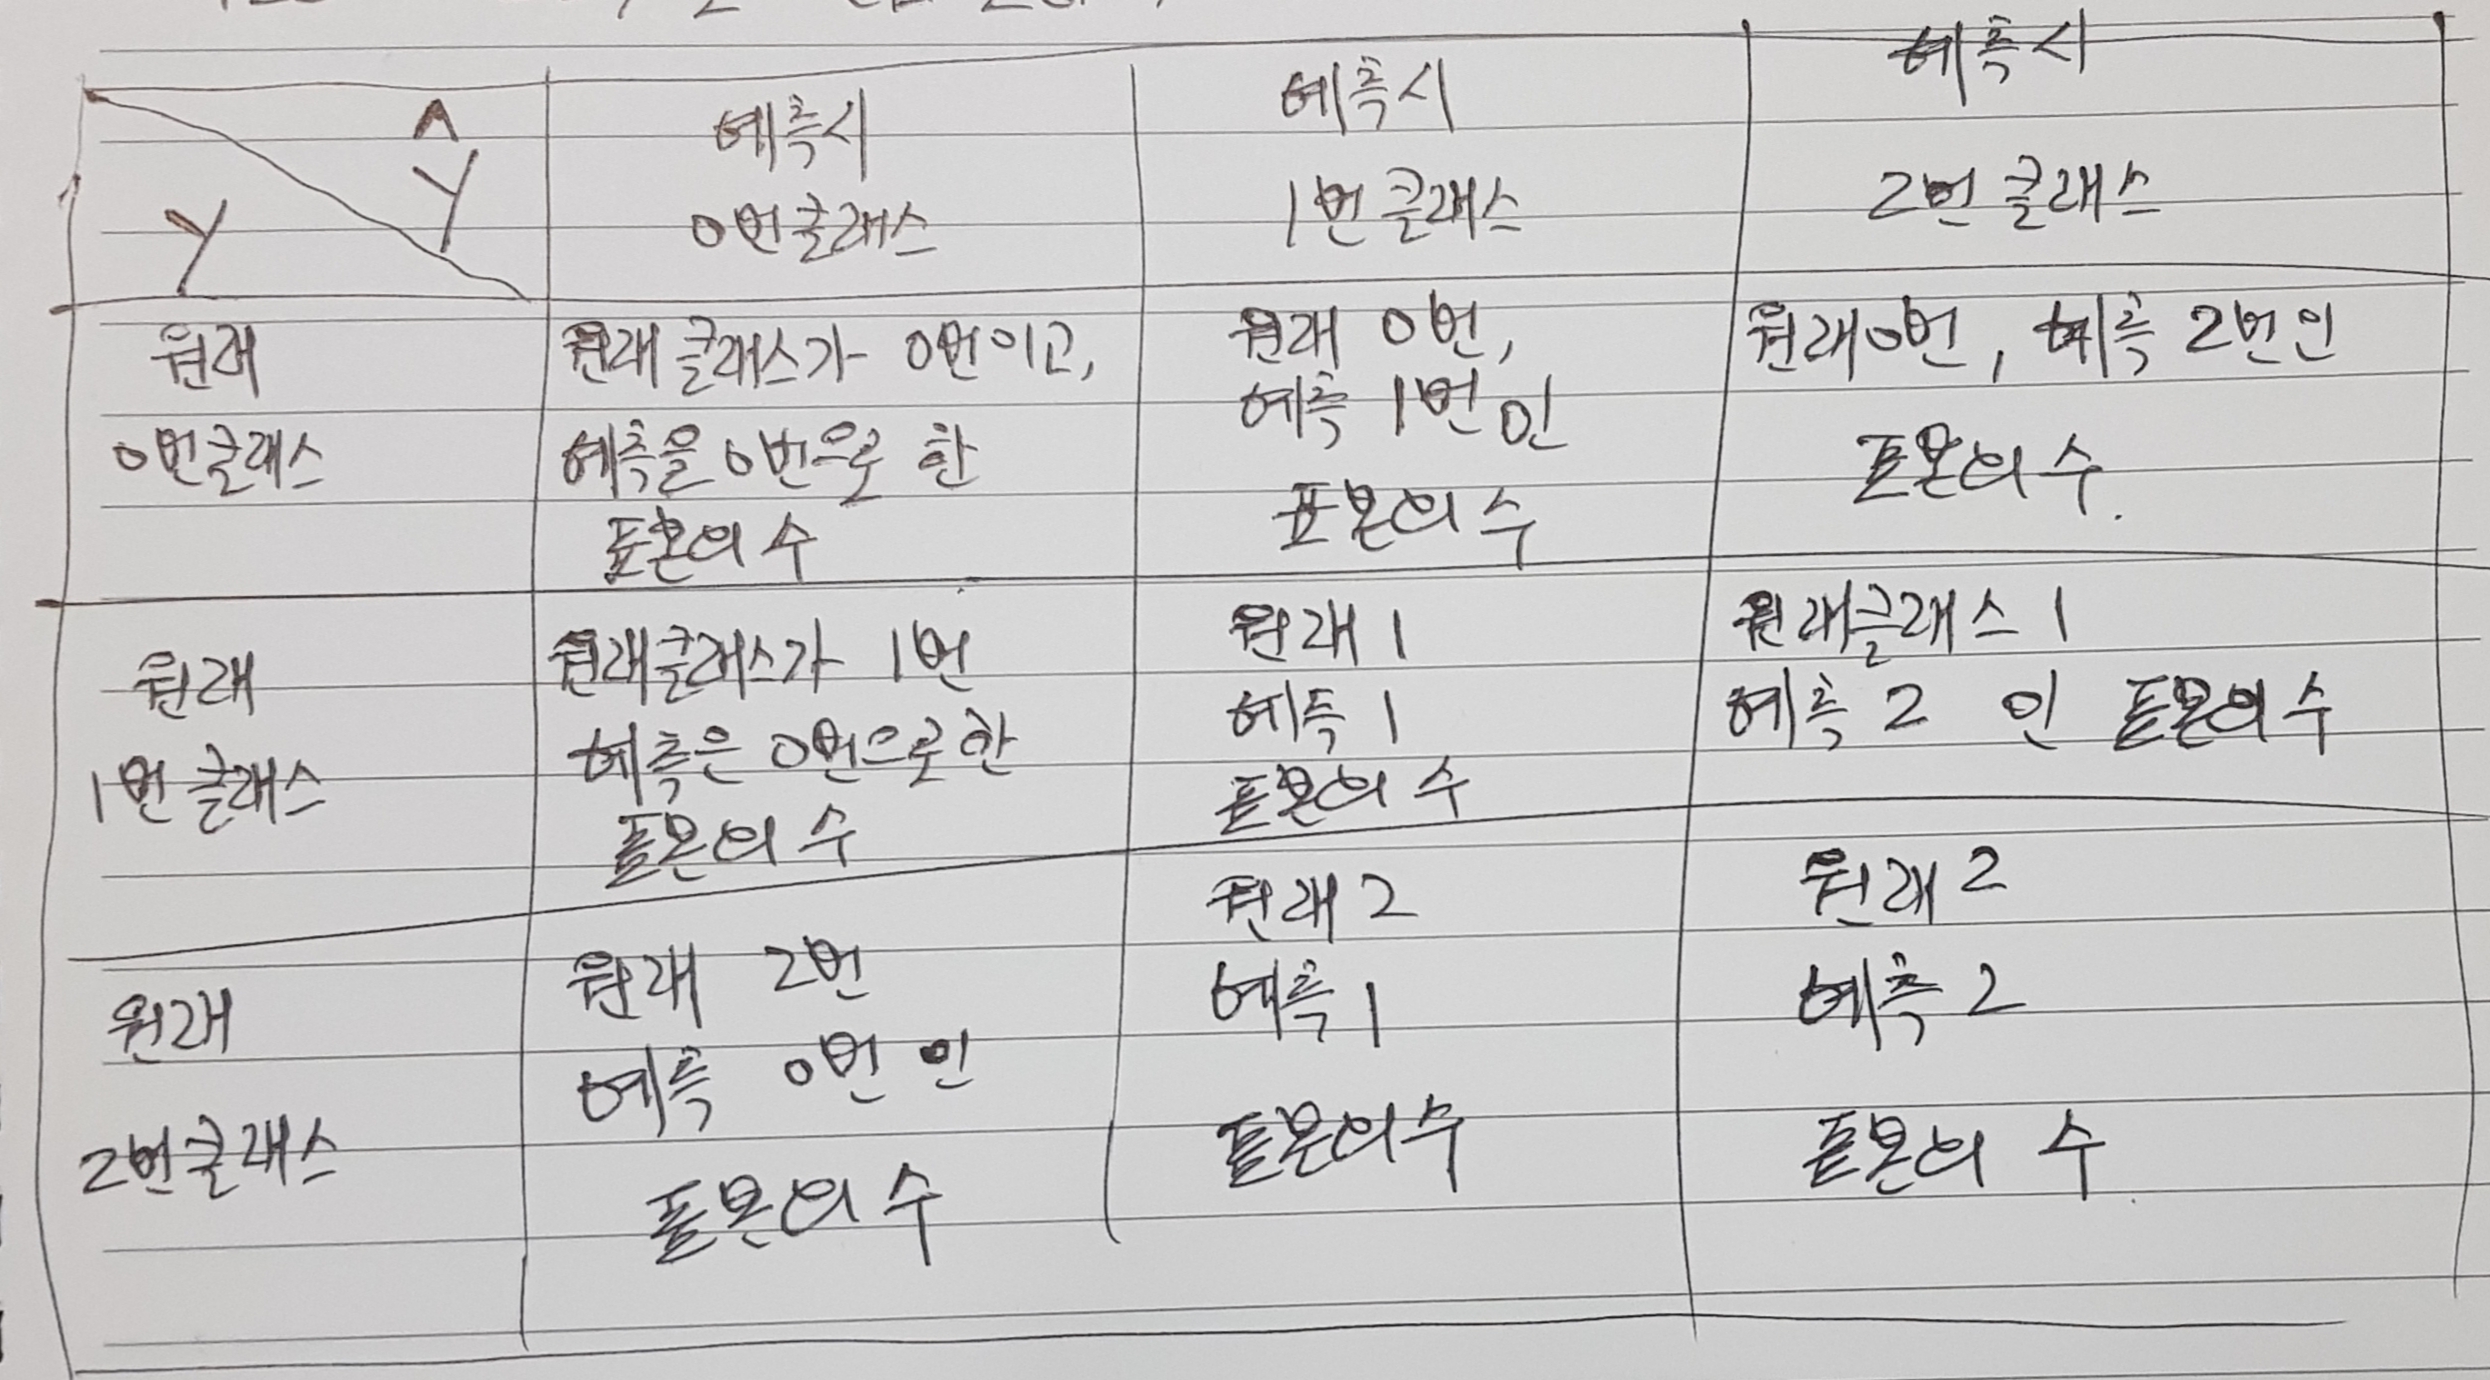 Ŷ
Y
예측시
0번클래스
예측시
1번클래스
예측시
2번클래스
원래
0번클래스
원래클래스가 0번이고,
예측을 0번으로 한
표본의 수
원래 0번,
예측 1번인
표본의 수
원래0번, 예측 2번인
표본의 수.
원래
1번클래스
원래클래스가 1번
예측은 0번으로한
표본의 수
원래 1
예측 1
표본의 수
원래클래스 1
예측 2 인 표본의 수
원래
2번클래스
원래 2번
예측 0번인
표본의 수
원래 2
예측 1
표본의수
원래 2
예측 2
표본의 수